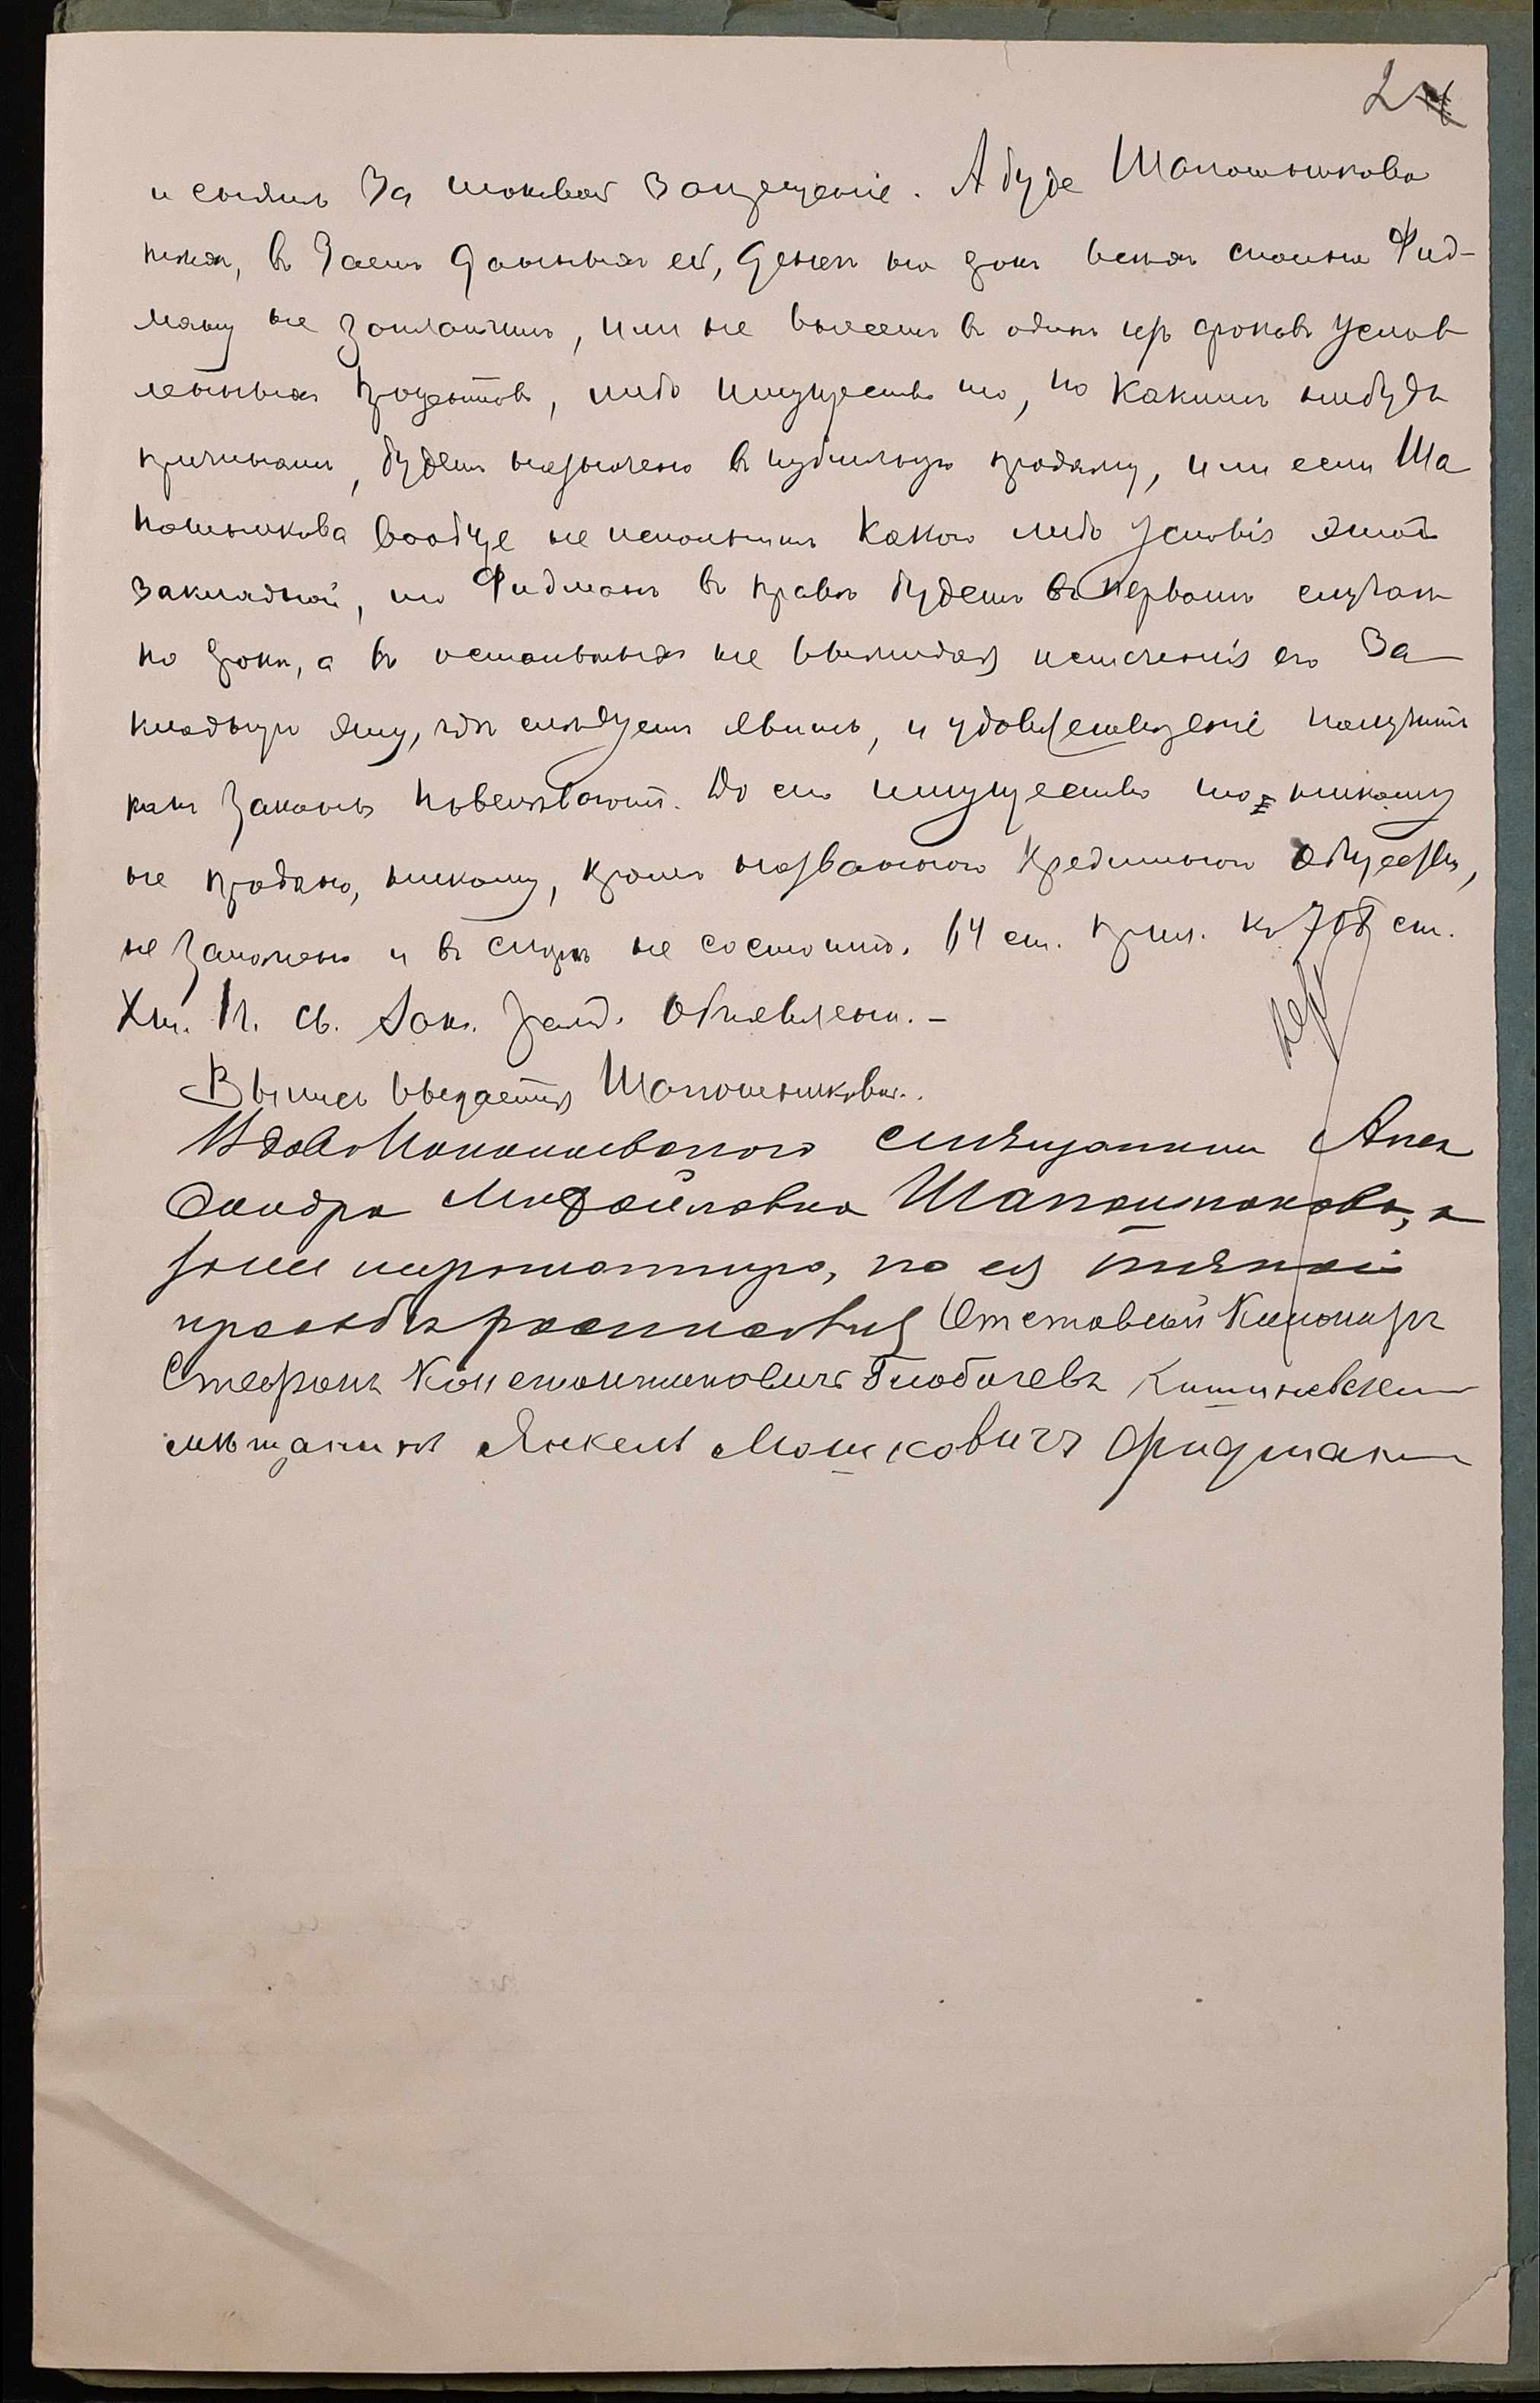 2
и съ нимъ за таковое запрещеніе. А буде Шапошникова
тѣхъ, въ заемъ данныхъ ей, денегъ на срокъ всѣхъ сполна Фид-
ману не заплатитъ, или не внесетъ въ одинъ изъ сроковъ услов
ленныхъ процентовъ, либо имущество то, по какимъ нибудь
причинамъ, будетъ назначено въ публичную продажу, или если Ша
пошникова вообще не исполнитъ какого либо условія этой
закладной, то Фидманъ въ правѣ будетъ въ первомъ случаѣ
по срокѣ, а въ остальныхъ не выжидая истеченія его За
кладную эту, гдѣ слѣдуетъ явить, и удовлетвореніе получить
какъ законы повелѣваютъ. До сего имущество то никому
не продано, никому, кромѣ названнаго Кредитнаго Общества,
не заложено и въ спорѣ не состоитъ. 14 ст. прил. къ 708 ст.
Х т. 1 ч. Св. Зак. Гражд. объявлены. –
Выпись выдается Шапошниковой.
Вдова Коллежскаго Алек
сандра Михайловна Шапошникова, а
за нею неграмотную, по ея личной
просьбѣ росписался Отставной Канониръ
Стефанъ Константиновичъ Глобачевъ Кишиневскій
мѣщанинъ Янкель Мошковичъ Фидманъ